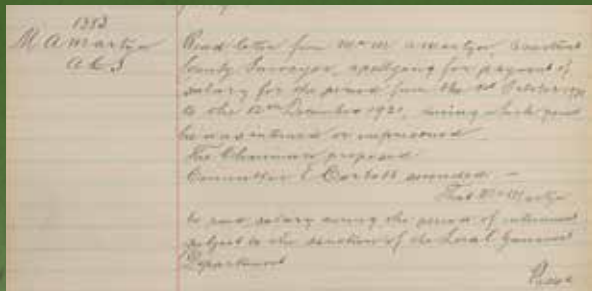 1383
M A Martyn
A C S
Read letter from Mr M A Martyn, Assistant
County Surveyor, applying for payment of
salary for the period from the 1st October 1921
to the 12th December 1921, during which period
he was interned or imprisoned
The Chairman proposed
Councillor E Corbett seconded -
That Mr Martyn
be paid salary during the period of internment
subject to the sanction of the Local Government
Department